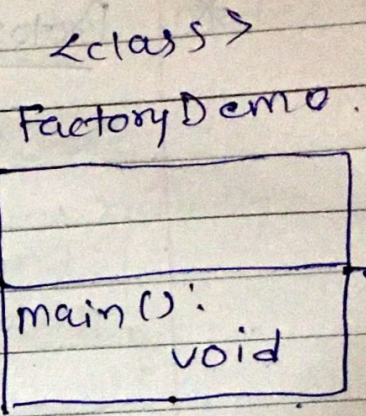 <class>
FactoryDemo.
main():
void